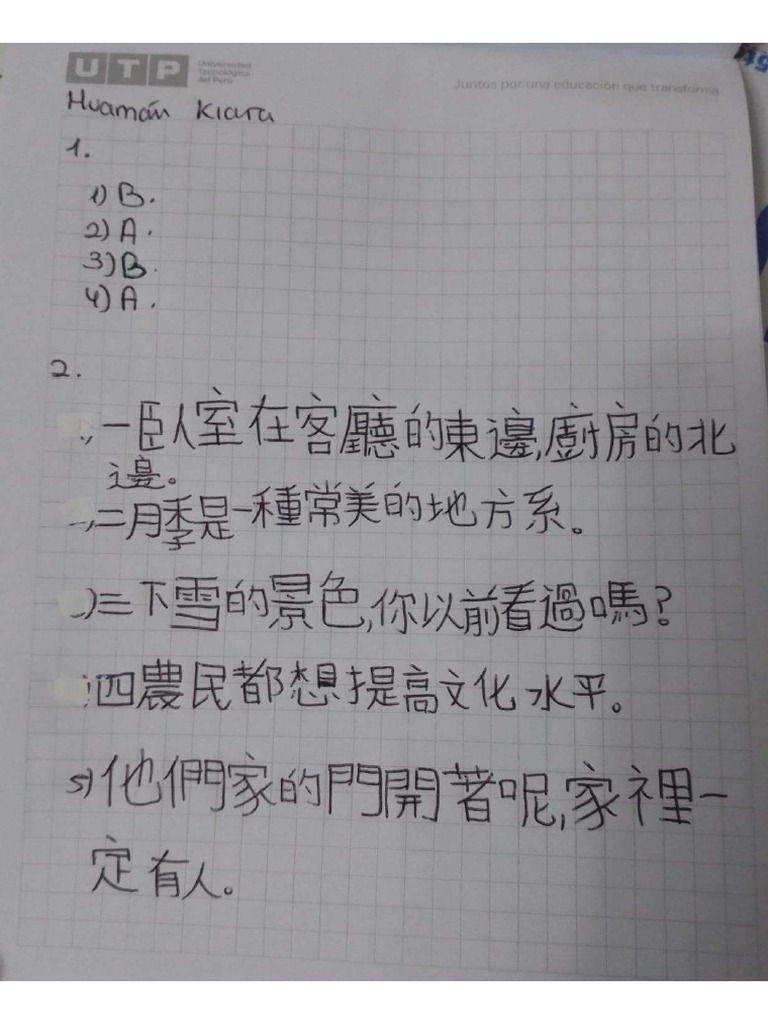 UTP Universidad
Tecnológica
del Perú
Juntos por una educación que transforma
Huamán Kiara
1.
1) B.
2) A.
3) B.
4) A.
2.
一臥室在客廳的東邊,廚房的北
邊。
二月季是一種常美的地方系。
三下雪的景色,你以前看過嗎?
四農民都想提高文化水平。
5) 他們家的門開著呢,家裡一
定有人。